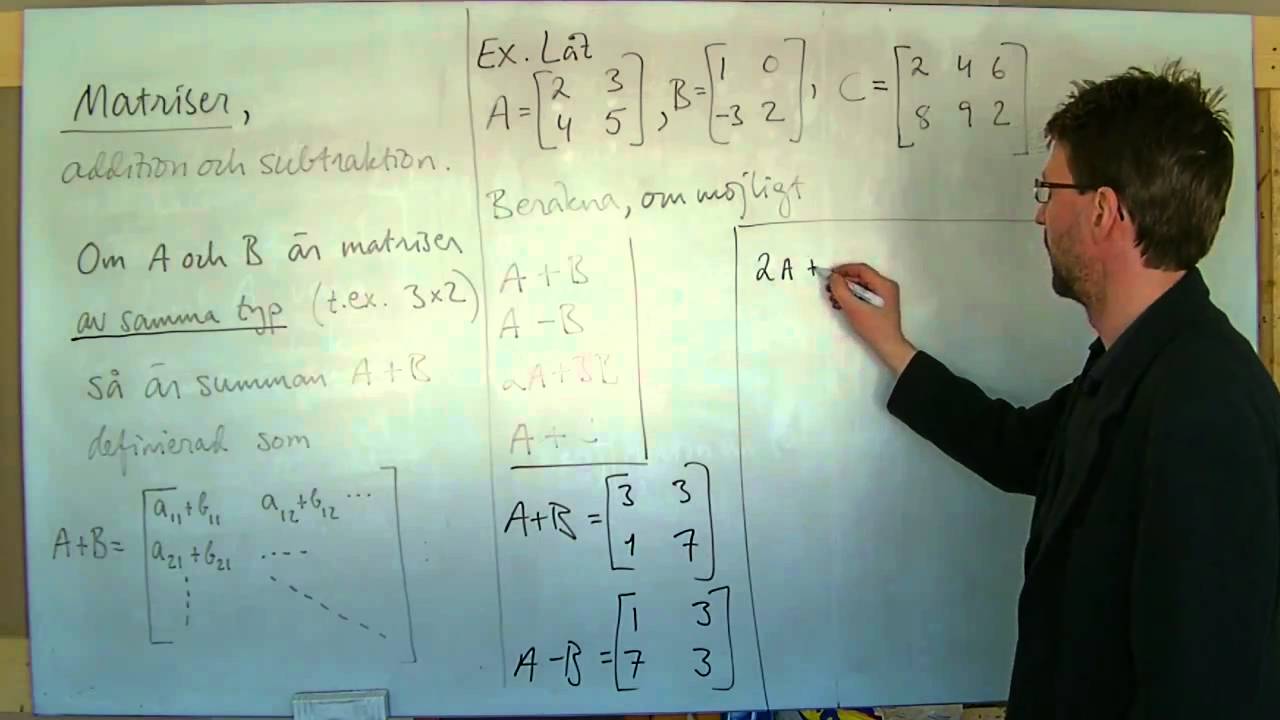 Matriser,
addition och subtraktion.
Om A och B är matriser
av samma typ (t.ex. 3×2)
så är summan A+B
definierad som
A+B= [a₁₁+b₁₁ a₁₂+b₁₂ ...
a₂₁+b₂₁ ....]
Ex. Låt
A=[2 3
4 5], B=[1 0
-3 2], C=[2 4 6
8 9 2]
Beräkna, om möjligt
A+B
A-B
A+
A+B=[3 3
1 7]
A-B=[1 3
7 3]
2A+